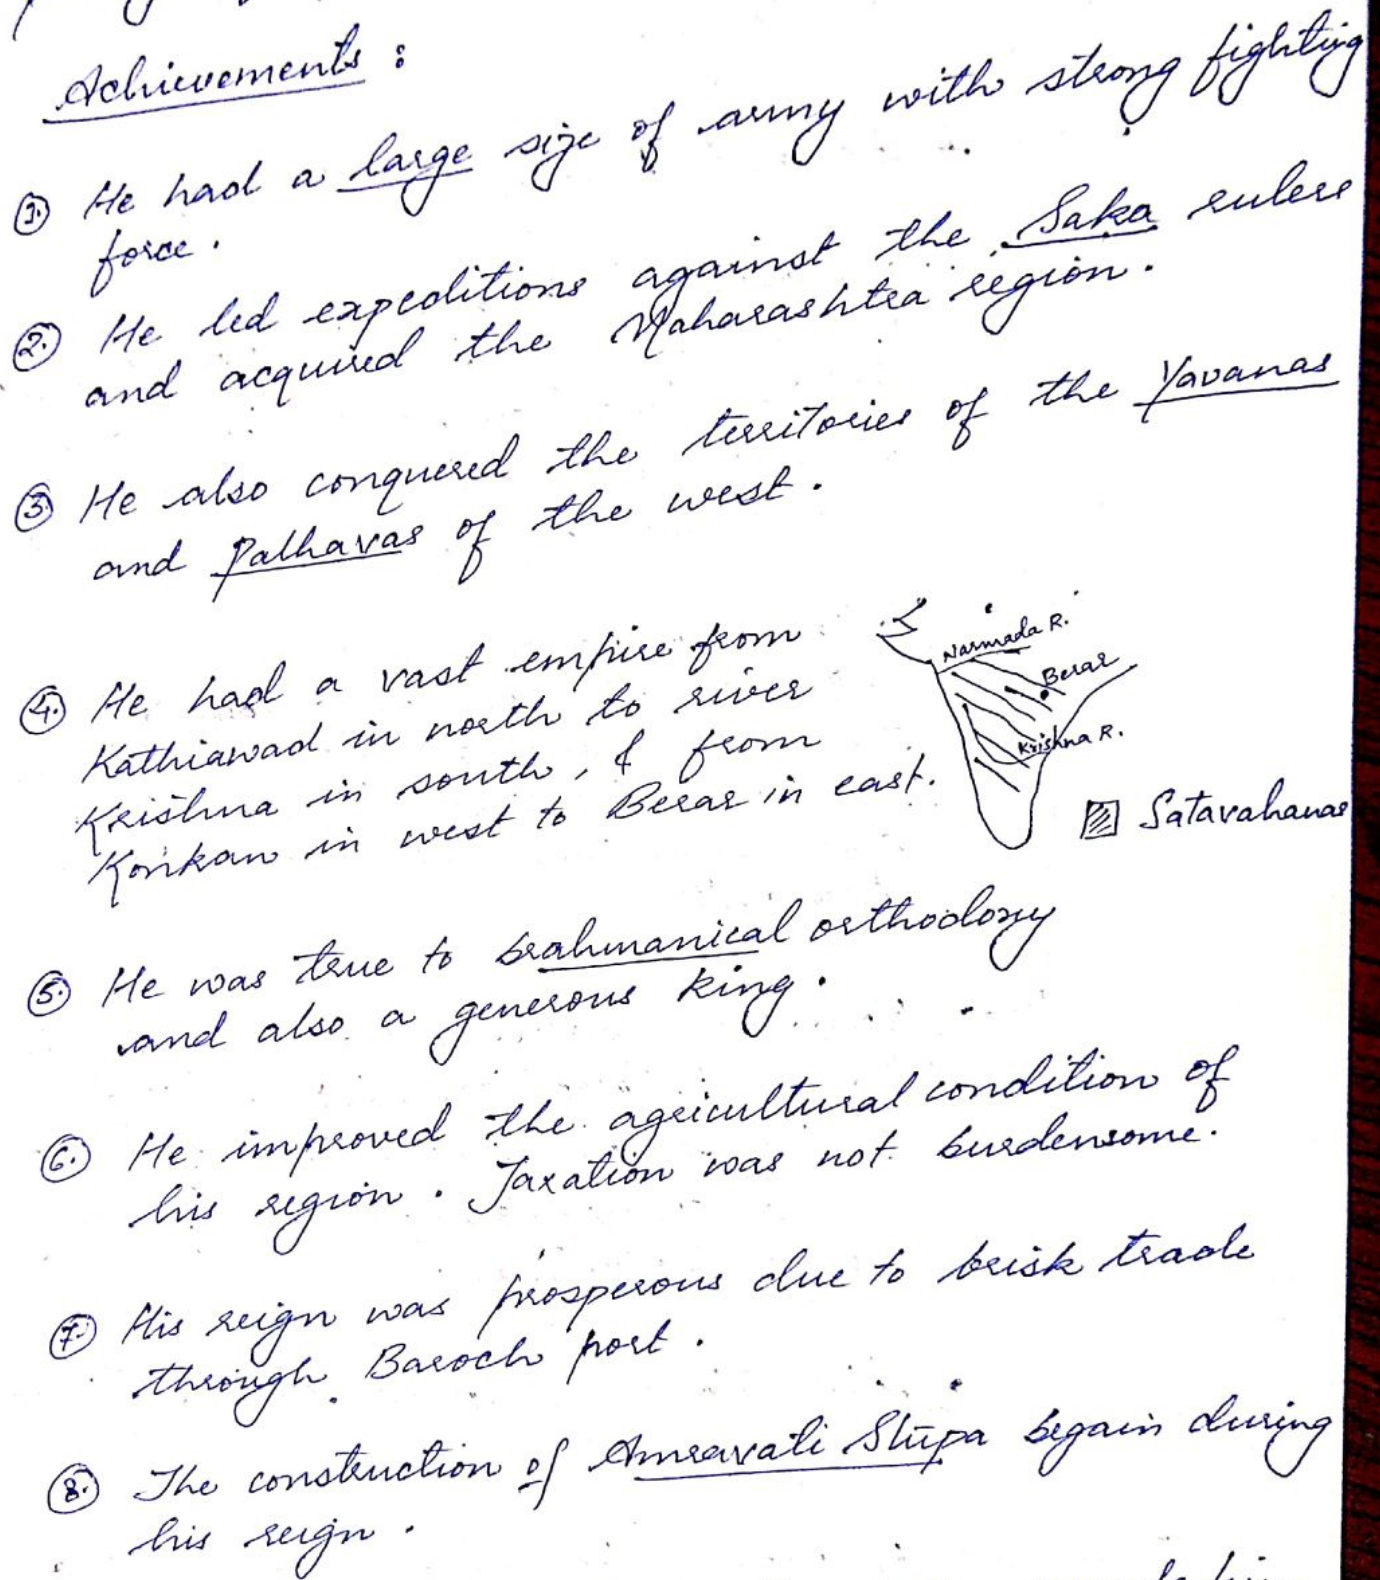 Achievements :
1. He had a large size of army with strong fighting
force.
2. He led expeditions against the Saka rulers
and acquired the Maharashtra region.
3. He also conquered the territories of the Yavanas
and Palhavas of the west.
4. He had a vast empire from
Kathiawad in north to river
Krishna in south, & from
Konkan in west to Berar in east.
Narmada R.
Berar
Krishna R.
Satavahanas
5. He was true to brahmanical orthodoxy
and also a generous king.
6. He improved the agricultural condition of
his region. Taxation was not burdensome.
7. His reign was prosperous due to brisk trade
through Baroch port.
8. The construction of Amravati Stupa begain during
his reign.